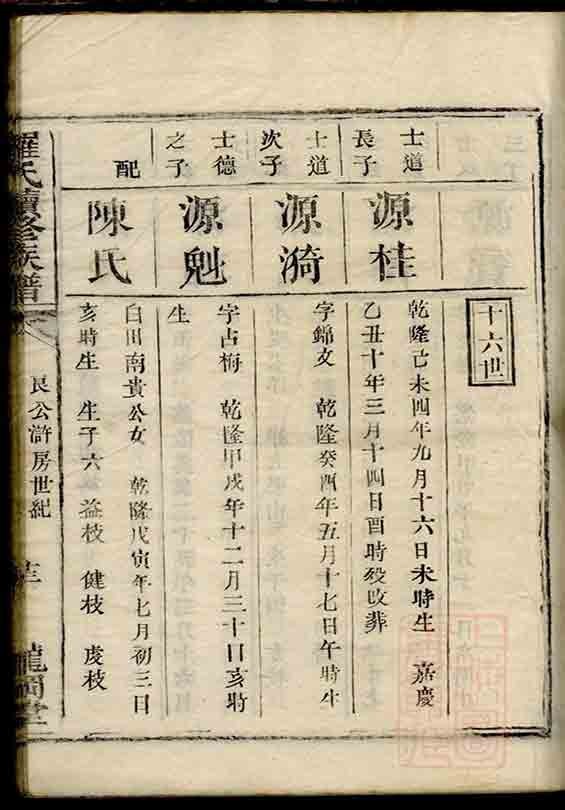 十六世
士道長子
源桂
乾隆己未四年九月十六日未時生 嘉慶
乙丑十年三月十四日酉時歿 改葬
士道次子
源漪
字錦文 乾隆癸酉年五月十七日午時生
士德之子
源魁
字占梅 乾隆甲戌年十二月三十日亥時
生
配
陳氏
白田南貴公女 乾隆戊寅年七月初三日
亥時生 生子六 益枝 健枝 虔枝
羅氏續修族譜
良公滸房世紀
龍岡堂